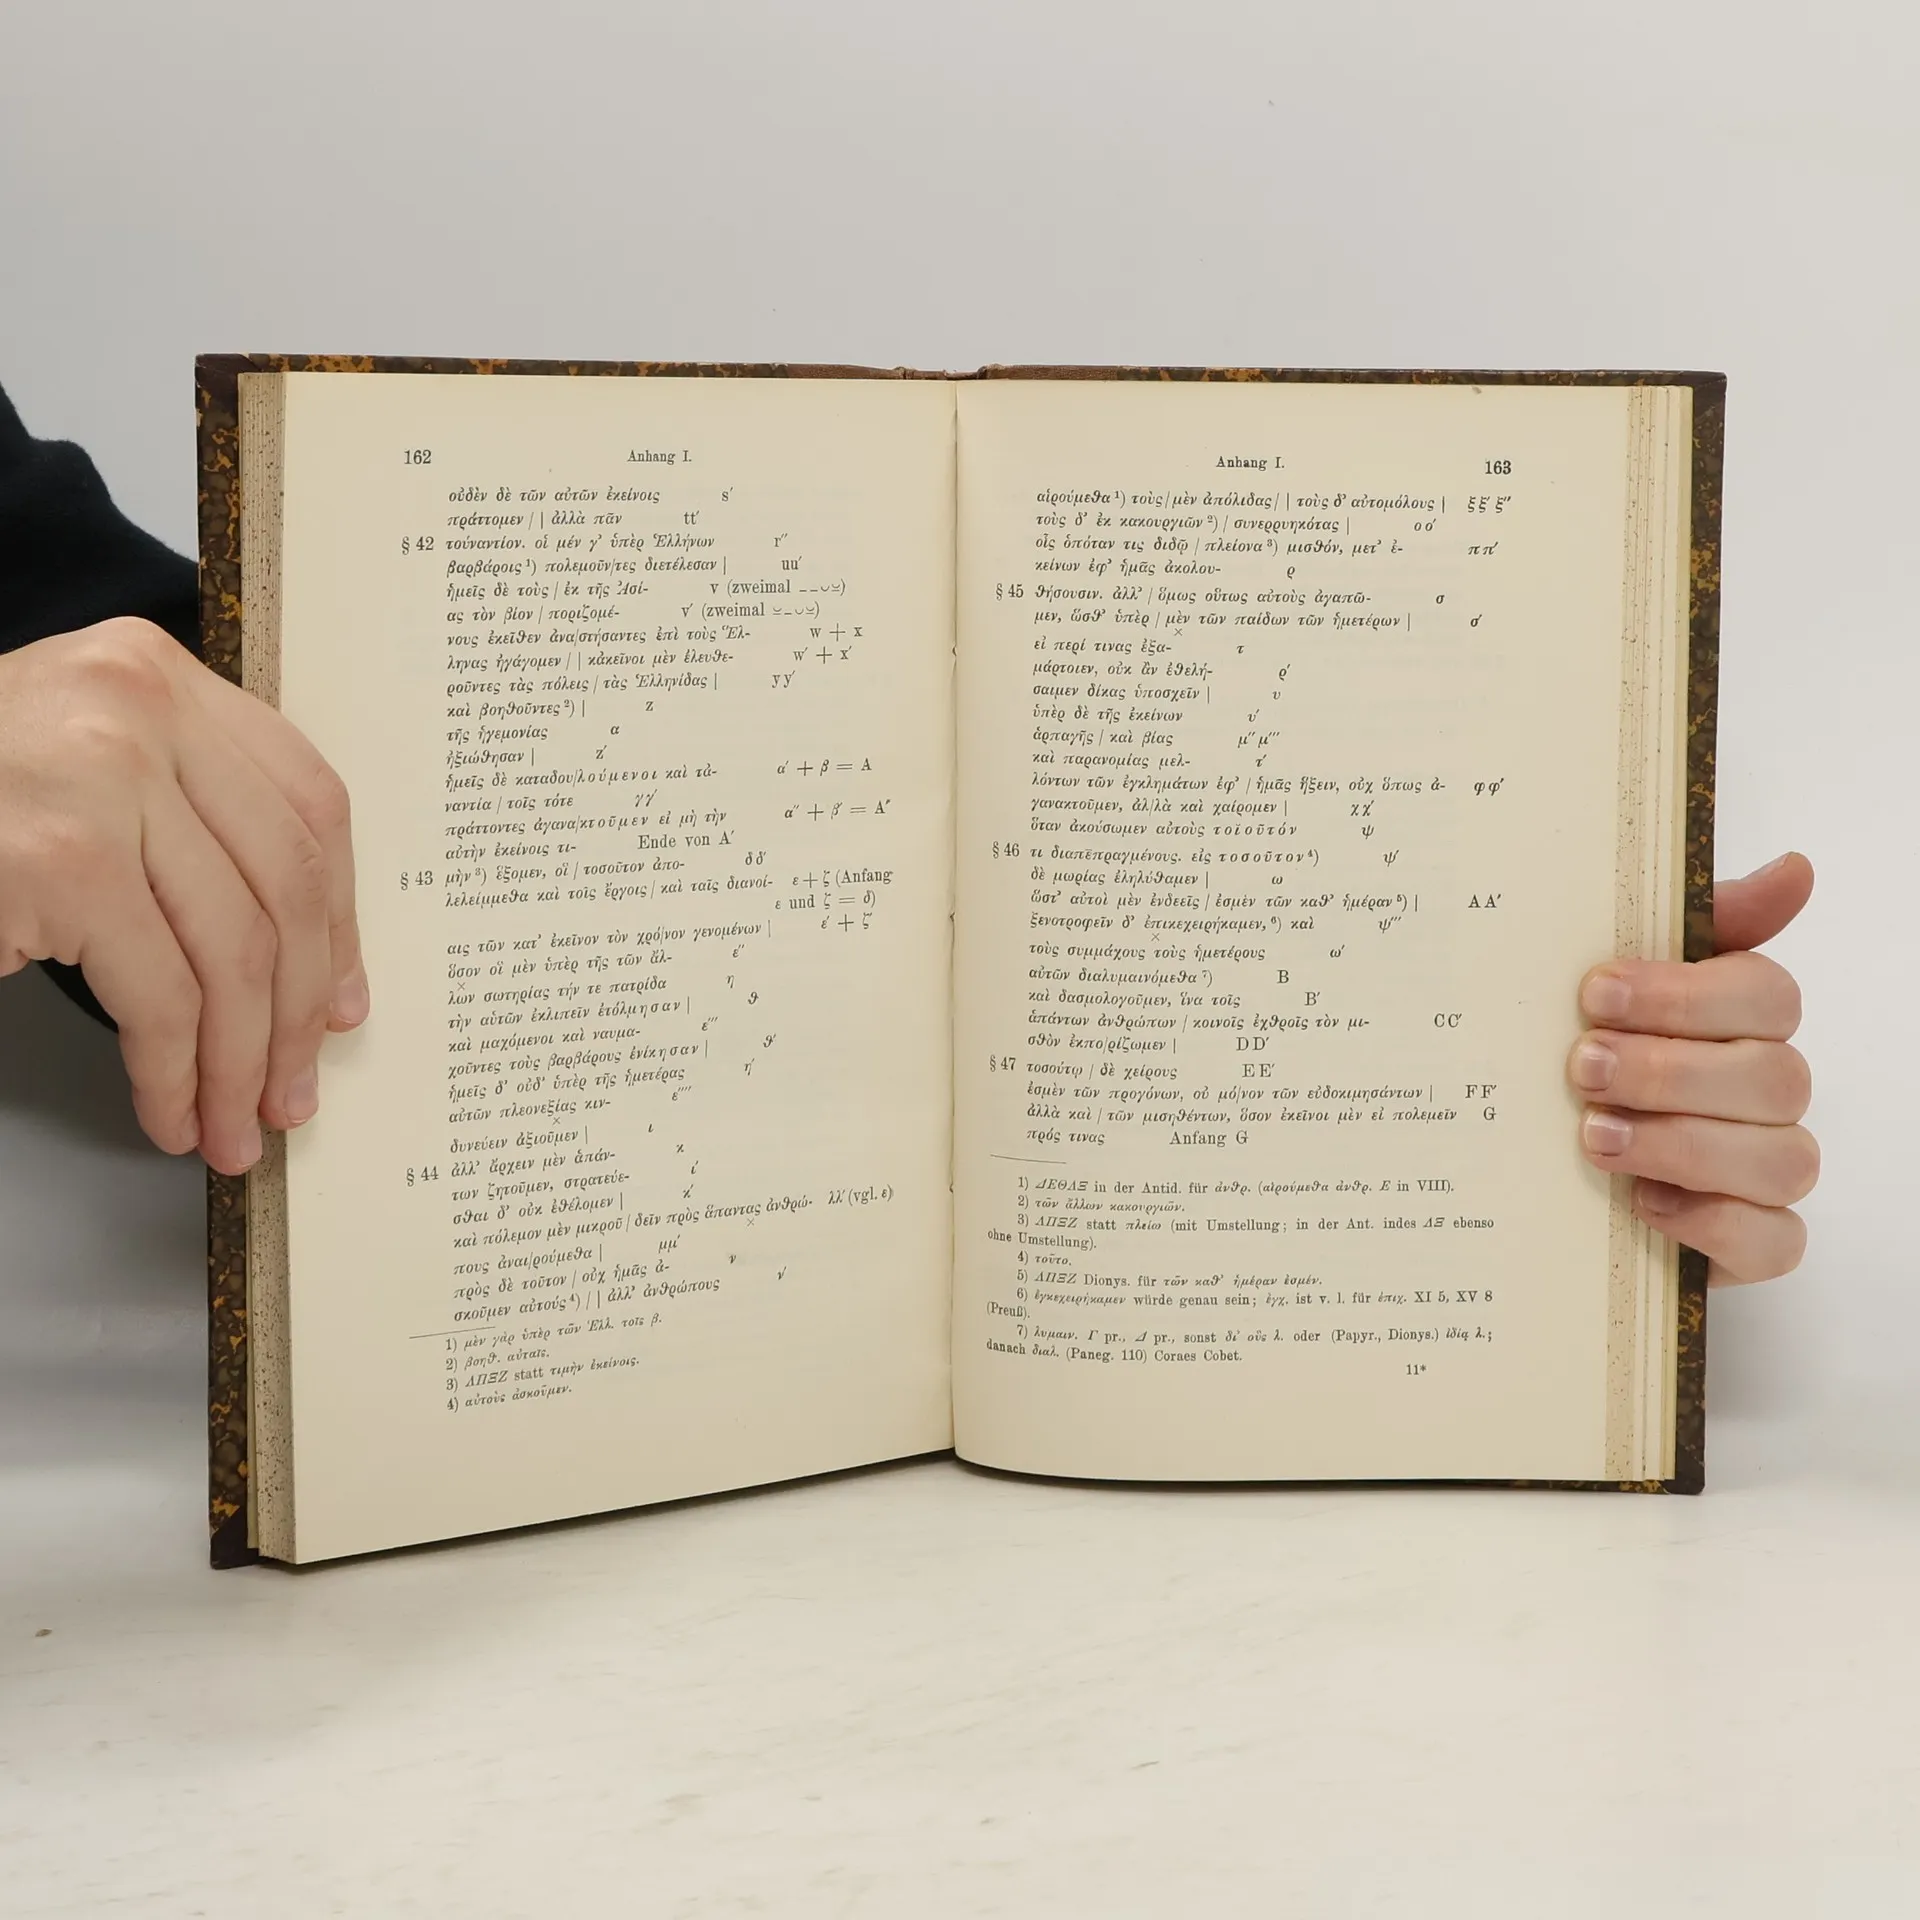 162
Anhang I.
οὐδὲν δὲ τῶν αὐτῶν ἐκείνοις s′
πράττομεν | | ἀλλὰ πᾶν tt′
§ 42 τοὐναντίον. οἱ μέν γ' ὑπὲρ Ἑλλήνων r″
βαρβάροις ¹) πολεμοῦν/τες διετέλεσαν | uu′
ἡμεῖς δὲ τοὺς / ἐκ τῆς Ἀσί- v (zweimal _ _ ⏑ ⏓)
ας τὸν βίον / ποριζομέ- v′ (zweimal ⏓ _ ⏑ ⏓)
νους ἐκεῖθεν ἀνα/στήσαντες ἐπὶ τοὺς Ἕλ- w + x
ληνας ἠγάγομεν / | κἀκεῖνοι μὲν ἐλευθε- w′ + x′
ροῦντες τὰς πόλεις / τὰς Ἑλληνίδας | yy′
καὶ βοηθοῦντες ²) | z
τῆς ἡγεμονίας α
ἠξιώθησαν | z′
ἡμεῖς δὲ καταδου/λούμενοι καὶ τἀ- α′ + β = A
ναντία / τοῖς τότε γγ′
πράττοντες ἀγανα/κτοῦμεν εἰ μὴ τὴν α″ + β′ = A″
αὐτὴν ἐκείνοις τι- Ende von A′
§ 43 μὴν ³) ἕξομεν, οἳ / τοσοῦτον ἀπο- δδ′
λελείμμεθα καὶ τοῖς ἔργοις / καὶ ταῖς διανοί- ε + ζ (Anfang
ε und ζ = δ)
αις τῶν κατ' ἐκεῖνον τὸν χρό/νον γενομένων | ε′ + ζ′
ὅσον οἳ μὲν ὑπὲρ τῆς τῶν ἄλ- ε″
λων σωτηρίας τήν τε πατρίδα η
τὴν αὑτῶν ἐκλιπεῖν ἐτόλμησαν | ϑ
καὶ μαχόμενοι καὶ ναυμα- ε‴
χοῦντες τοὺς βαρβάρους ἐνίκησαν | ϑ′
ἡμεῖς δ' οὐδ' ὑπὲρ τῆς ἡμετέρας η′
αὐτῶν πλεονεξίας κιν- ε⁗
δυνεύειν ἀξιοῦμεν | ι
§ 44 ἀλλ' ἄρχειν μὲν ἁπάν- κ
των ζητοῦμεν, στρατεύε- ι′
σθαι δ' οὐκ ἐθέλομεν | κ′
καὶ πόλεμον μὲν μικροῦ / δεῖν πρὸς ἅπαντας ἀνθρώ- λλ′ (vgl. ε)
πους ἀναι/ρούμεθα | μμ′
πρὸς δὲ τοῦτον / οὐχ ἡμᾶς ἀ- ν
σκοῦμεν αὐτούς ⁴) / | ἀλλ' ἀνθρώπους ν′
1) μὲν γὰρ ὑπὲρ τῶν Ἑλλ. τοῖς β.
2) βοηθ. αὐταῖς.
3) ΛΠΞΖ statt τιμὴν ἐκείνοις.
4) αὐτοὺς ἀσκοῦμεν.
Anhang I.
163
αἱρούμεθα ¹) τοὺς / μὲν ἀπόλιδας / | τοὺς δ' αὐτομόλους | ξξ′ ξ″
τοὺς δ' ἐκ κακουργιῶν ²) / συνερρυηκότας | οο′
οἷς ὁπόταν τις διδῷ / πλείονα ³) μισθόν, μετ' ἐ- ππ′
κείνων ἐφ' ἡμᾶς ἀκολου- ρ
§ 45 θήσουσιν. ἀλλ' / ὅμως οὕτως αὐτοὺς ἀγαπῶ- σ
μεν, ὥσθ' ὑπὲρ / μὲν τῶν παίδων τῶν ἡμετέρων | σ′
εἰ περί τινας ἐξα- τ
μάρτοιεν, οὐκ ἂν ἐθελή- ρ′
σαιμεν δίκας ὑποσχεῖν | υ
ὑπὲρ δὲ τῆς ἐκείνων υ′
ἁρπαγῆς / καὶ βίας μ″ μ‴
καὶ παρανομίας μελ- τ′
λόντων τῶν ἐγκλημάτων ἐφ' / ἡμᾶς ἥξειν, οὐχ ὅπως ἀ- φφ′
γανακτοῦμεν, ἀλ/λὰ καὶ χαίρομεν | χχ′
ὅταν ἀκούσωμεν αὐτοὺς τοιοῦτόν ψ
§ 46 τι διαπεπραγμένους. εἰς τοσοῦτον ⁴) ψ′
δὲ μωρίας ἐληλύθαμεν | ω
ὥστ' αὐτοὶ μὲν ἐνδεεῖς / ἐσμὲν τῶν καθ' ἡμέραν ⁵) | AA′
ξενοτροφεῖν δ' ἐπικεχειρήκαμεν, ⁶) καὶ ψ‴
τοὺς συμμάχους τοὺς ἡμετέρους ω′
αὐτῶν διαλυμαινόμεθα ⁷) B
καὶ δασμολογοῦμεν, ἵνα τοῖς B′
ἁπάντων ἀνθρώπων / κοινοῖς ἐχθροῖς τὸν μι- CC′
σθὸν ἐκπο/ρίζωμεν | DD′
§ 47 τοσούτῳ / δὲ χείρους EE′
ἐσμὲν τῶν προγόνων, οὐ μό/νον τῶν εὐδοκιμησάντων | FF′
ἀλλὰ καὶ / τῶν μισηθέντων, ὅσον ἐκεῖνοι μὲν εἰ πολεμεῖν G
πρός τινας Anfang G
1) ΔΕΘΛΞ in der Antid. für ἀνθρ. (αἱρούμεθα ἀνθρ. E in VIII).
2) τῶν ἄλλων κακουργιῶν.
3) ΛΠΞΖ statt πλείω (mit Umstellung; in der Ant. indes ΛΞ ebenso
ohne Umstellung).
4) τοῦτο.
5) ΛΠΞΖ Dionys. für τῶν καθ' ἡμέραν ἐσμέν.
6) ἐγκεχειρήκαμεν würde genau sein; ἐγχ. ist v. l. für ἐπιχ. XI 5, XV 8
(Preuß).
7) λυμαιν. Γ pr., Δ pr., sonst δι' οὓς λ. oder (Papyr., Dionys.) ἰδίᾳ λ.;
danach διαλ. (Paneg. 110) Coraes Cobet.
11*